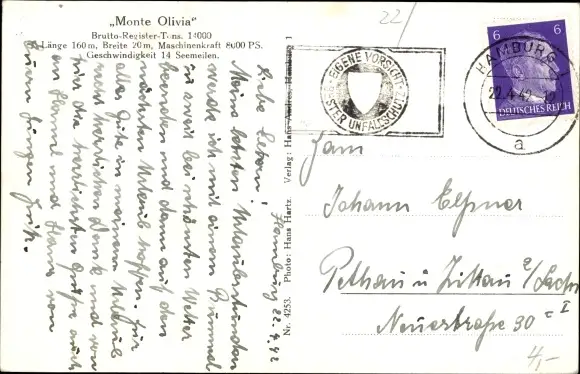 22/
„Monte Olivia“
Brutto-Register-Tons. 14000
Länge 160 m, Breite 20 m, Maschinenkraft 8000 PS.
Geschwindigkeit 14 Seemeilen.
Hamburg 22.4.42
Liebe Eltern!
Meine letzten Urlaubsstunden
werde ich mit einem Bummel
in zwei bei schönsten Wetter
beenden und dann auf den
nächsten Urlaub hoffen. Für
alles Gute in meinem Urlaub
recht herzlichen Dank und nun
für die herzlichsten Grüße auch
an Hansel und Hanna von
Eurem Jungen Fritz.
Nr. 4253. Photo: Hans Hartz. Verlag: Hans Andres, Hamburg 1
EIGENE VORSICHT
STER UNFALLSCHUTZ
HAMBURG 1
22.4.42
a
6 6
DEUTSCHES REICH
Fam
Johann Elßner
Pethau ü Zittau i/Sachs
Neuestraße 30 c I
4,-